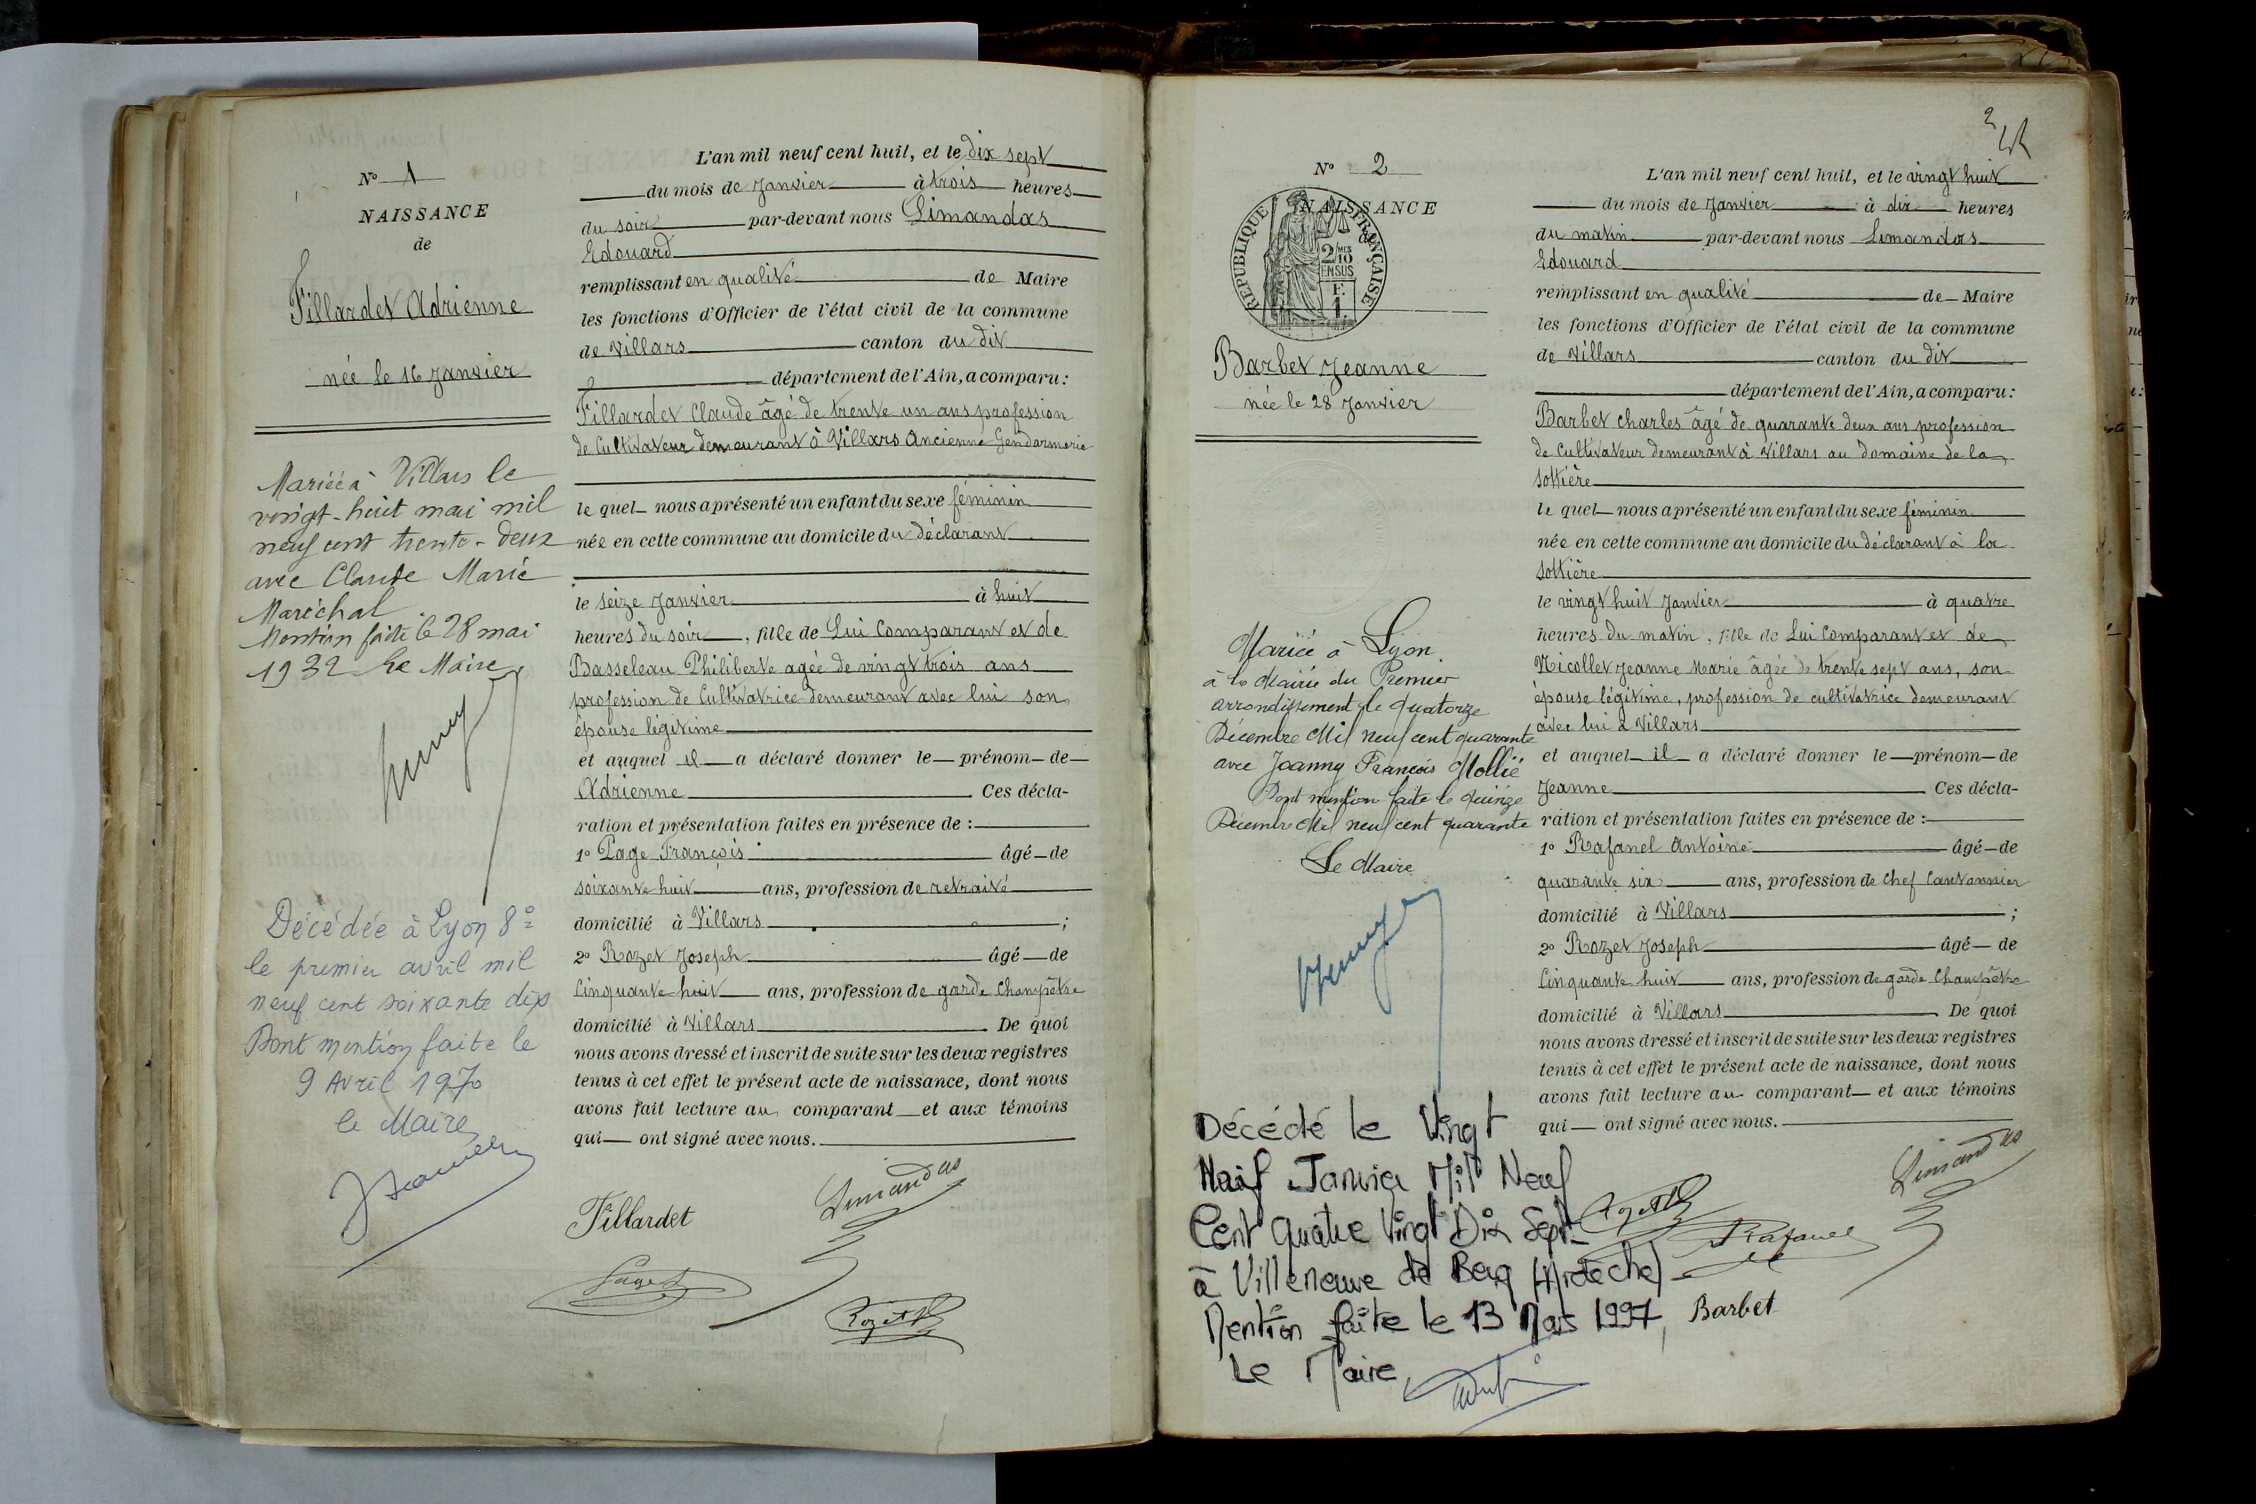 N° 1
NAISSANCE
de
Fillardet Adrienne
née le 16 Janvier
Mariée à Villars le
vingt-huit mai mil
neuf cent trente-deux
avec Claude Marie
Maréchal
Mention faite le 28 mai
1932 Le Maire,
Décédée à Lyon 8e
le premier avril mil
neuf cent soixante dix
Dont mention faite le
9 Avril 1970
le Maire
L'an mil neuf cent huit, et le dix sept
du mois de Janvier à trois heures
du soir par-devant nous Limandas
Edouard
remplissant en qualité de Maire
les fonctions d'Officier de l'état civil de la commune
de Villars canton du dit
département de l'Ain, a comparu :
Fillardet Claude âgé de trente un ans profession
de Cultivateur demeurant à Villars Ancienne Gendarmerie
le quel nous a présenté un enfant du sexe féminin
née en cette commune au domicile du déclarant
le seize Janvier à huit
heures du soir, fille de Lui Comparant et de
Basseleau Philiberte agée de vingt trois ans
profession de Cultivatrice demeurant avec lui son
épouse légitime
et auquel il a déclaré donner le prénom de
Adrienne Ces décla-
ration et présentation faites en présence de :
1° Page François âgé de
soixante huit ans, profession de retraité
domicilié à Villars ;
2° Rozet Joseph âgé de
Cinquante huit ans, profession de garde Champêtre
domicilié à Villars. De quoi
nous avons dressé et inscrit de suite sur les deux registres
tenus à cet effet le présent acte de naissance, dont nous
avons fait lecture au comparant et aux témoins
qui ont signé avec nous.
Fillardet
Limandas
Page
Rozet
2
N° 2
NAISSANCE
de
REPUBLIQUE FRANÇAISE
2/10
EN SUS
F.
1.
Barbet Jeanne
née le 28 Janvier
Mariée à Lyon
à la Mairie du Premier
arrondissement le quatorze
Décembre Mil neuf cent quarante
avec Joanny François Mollié
Dont mention faite le quinze
Décembre Mil neuf cent quarante
Le Maire
Décédé le Vingt
Neuf Janvier Mil Neuf
Cent Quatre Vingt Dix Sept
à Villeneuve de Berg (Ardèche)
Mention faite le 13 Mars 1997,
Le Maire
L'an mil neuf cent huit, et le vingt huit
du mois de Janvier à dix heures
du matin par-devant nous Limandas
Edouard
remplissant en qualité de Maire
les fonctions d'Officier de l'état civil de la commune
de Villars canton du dit
département de l'Ain, a comparu :
Barbet Charles âgé de quarante deux ans profession
de Cultivateur demeurant à Villars au domaine de la
Sottière
le quel nous a présenté un enfant du sexe féminin
née en cette commune au domicile du déclarant à la
Sottière
le vingt huit Janvier à quatre
heures du matin, fille de Lui Comparant et de
Nicollet Jeanne Marie âgée de trente sept ans, son
épouse légitime, profession de cultivatrice demeurant
avec lui à Villars
et auquel il a déclaré donner le prénom de
Jeanne Ces décla-
ration et présentation faites en présence de :
1° Rafanel Antoine âgé de
quarante six ans, profession de Chef Cantonnier
domicilié à Villars ;
2° Rozet Joseph âgé de
Cinquante huit ans, profession de garde Champêtre
domicilié à Villars. De quoi
nous avons dressé et inscrit de suite sur les deux registres
tenus à cet effet le présent acte de naissance, dont nous
avons fait lecture au comparant et aux témoins
qui ont signé avec nous.
Limandas
Rozet
Rafanel
Barbet